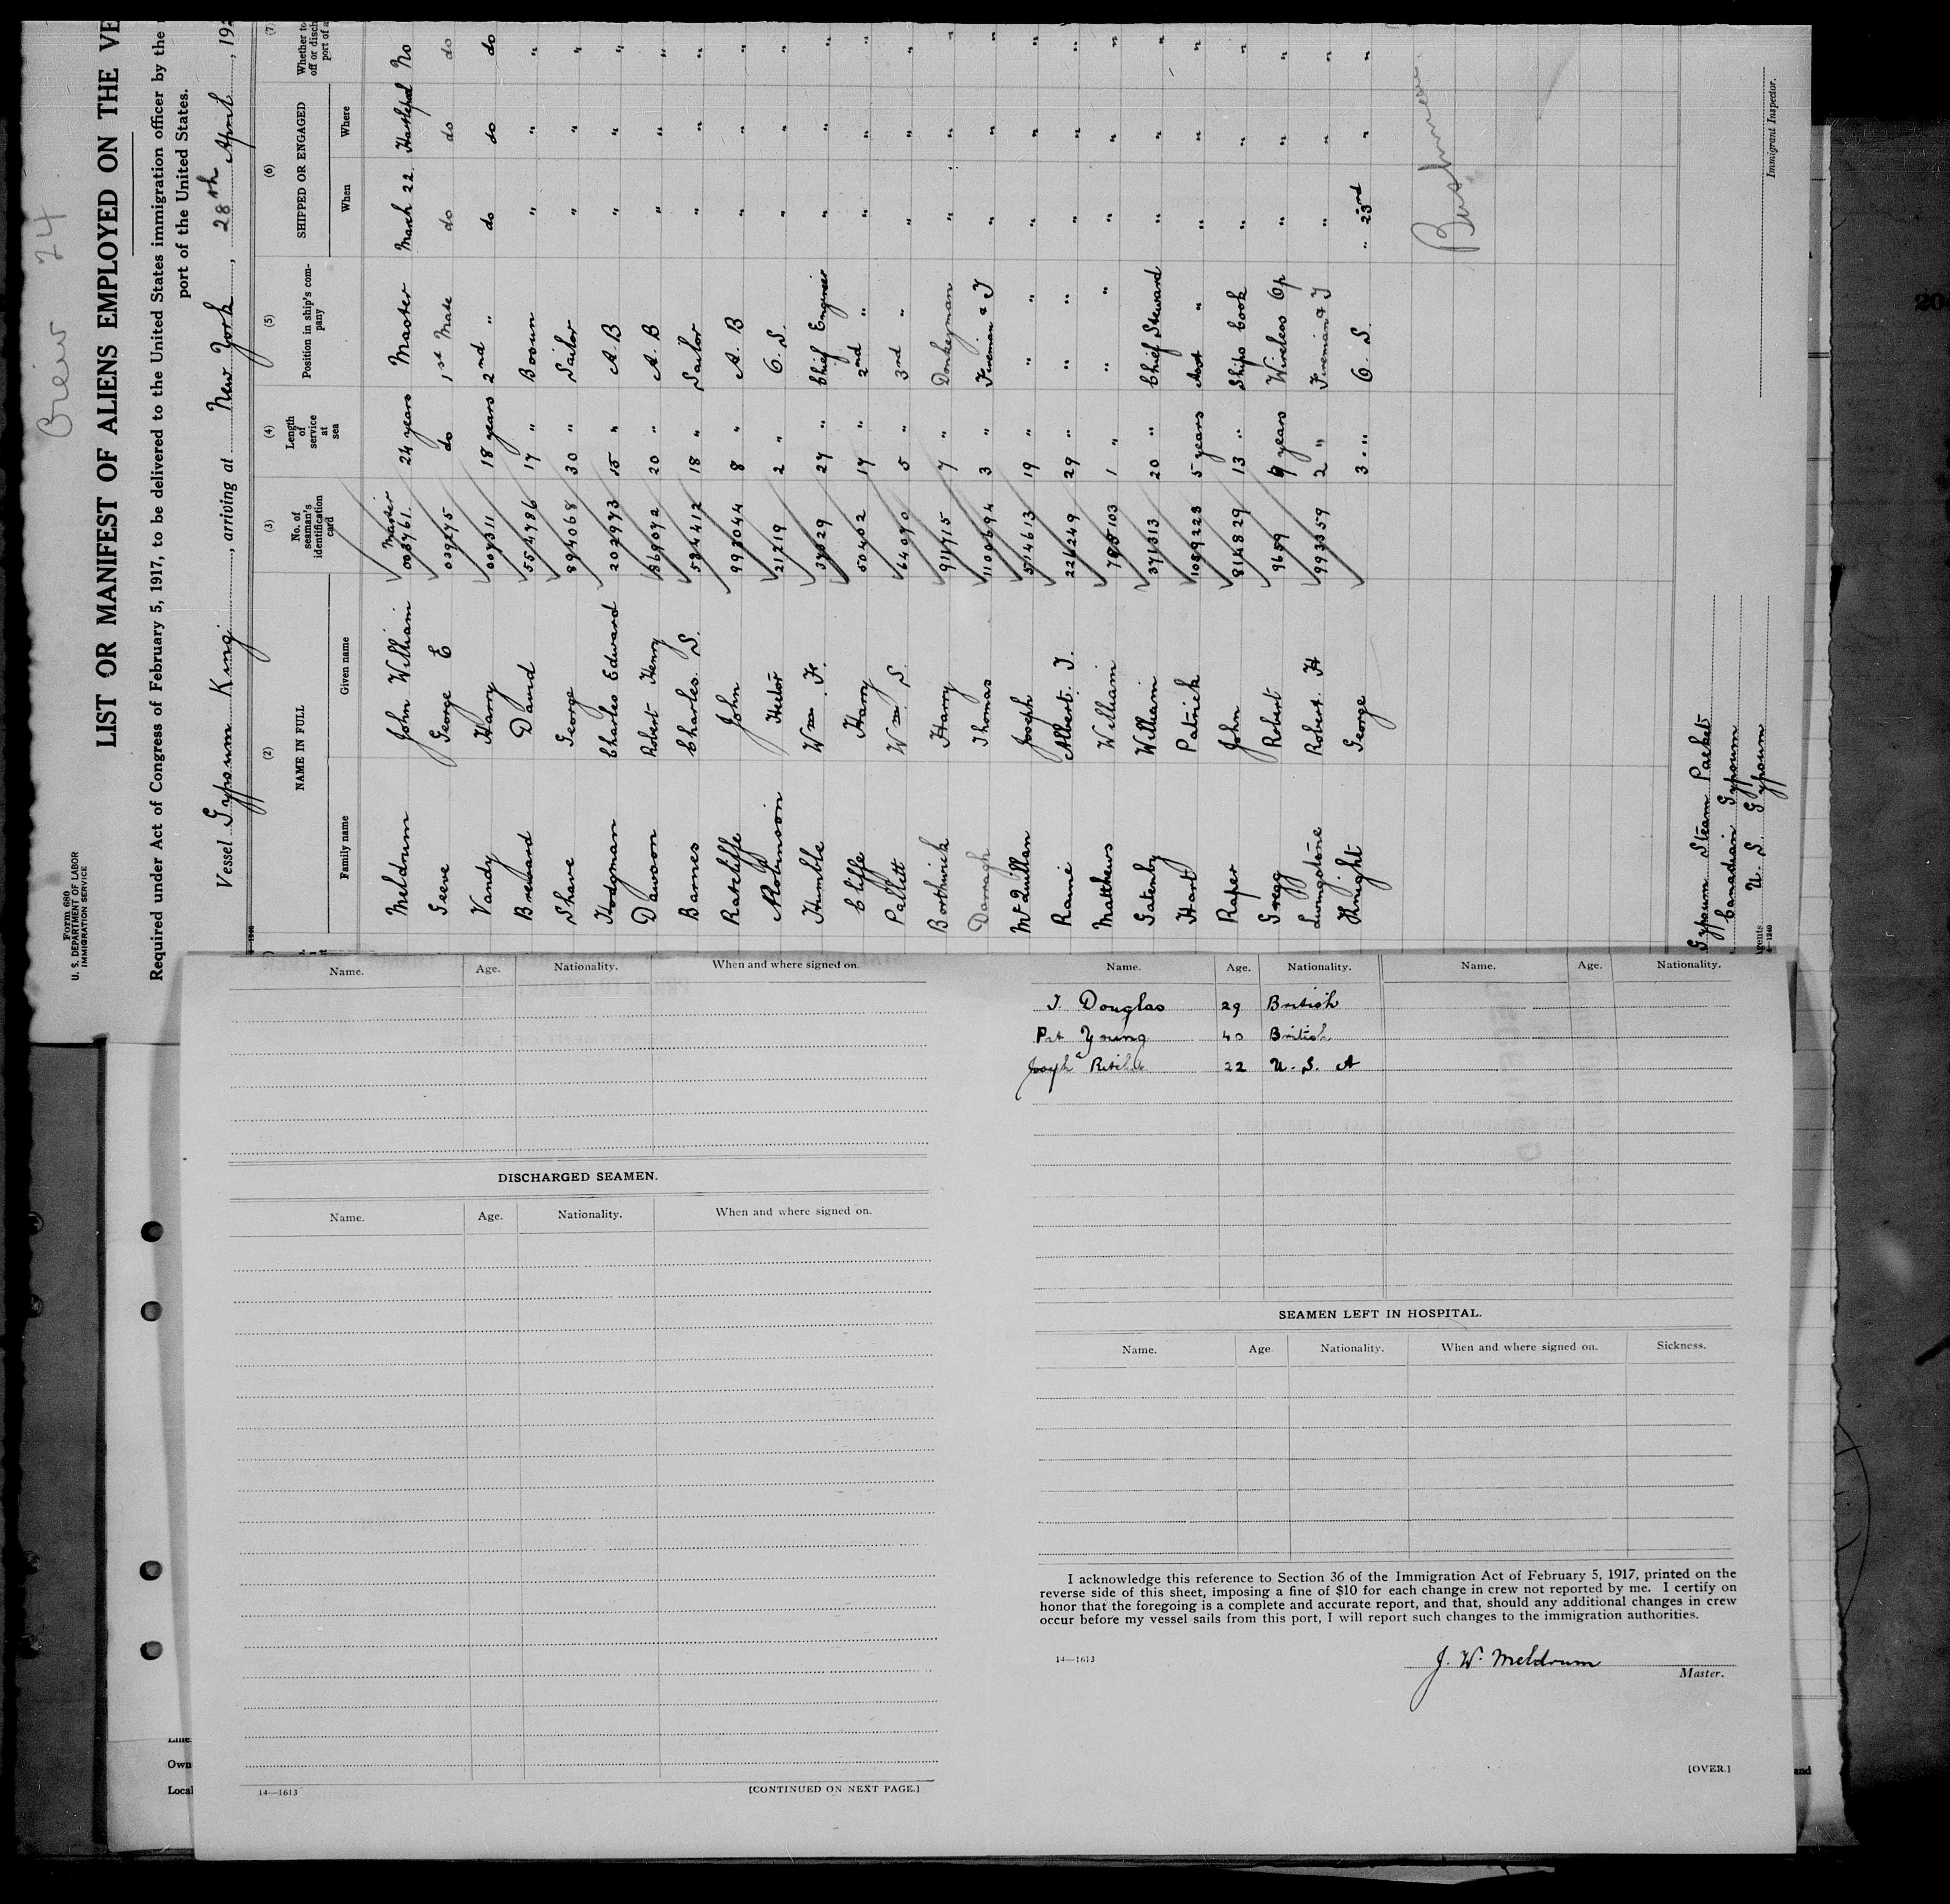 Breiv 24
Form 680
U. S. DEPARTMENT OF LABOR
IMMIGRATION SERVICE
LIST OR MANIFEST OF ALIENS EMPLOYED ON THE VE
Required under Act of Congress of February 5, 1917, to be delivered to the United States immigration officer by the
port of the United States.
Vessel Gypsum King, arriving at New York, 28th April, 192
(2) (3) (4) (5) (6) (7)
NAME IN FULL No. of seaman's identification card Length of service at sea Position in ship's company SHIPPED OR ENGAGED Whether to off or disch port of a
Family name Given name When Where
Meldrum John William Master 003761 24 years Master March 22. Hartlepool No
Geeve George E 039275 do 1st Mate do do do
Vandy Harry 007311 18 years 2nd " do do do
Breward David 554786 17 " Bosun " " "
Shave George 894068 30 " Sailor " " "
Hodgman Charles Edward 202973 15 " A. B " " "
Dawson Robert Henry 869072 20 " A B " " "
Barnes Charles. S. 534412 18 " Sailor " " "
Ratcliffe John 993044 8 " A. B " " "
Robinson Hector 21219 2 " O. S. " " "
Humble Wm. H. 37329 27 " Chief Engineer " " "
Cliffe Harry 50402 17 " 2nd " " " "
Pallett Wm S. 64070 5 " 3rd " " " "
Borthwick Harry 911715 7 " Donkeyman " " "
Darragh Thomas 1100694 3 " Fireman & T " " "
McQuillan Joseph 514613 19 " " " " " "
Raine Albert. T. 226249 29 " " " " " "
Matthews William 785103 1 " " " " " "
Gatenby William 371313 20 " Chief Steward " " "
Hart Patrick 1089223 5 years Asst " " " "
Raper John 814829 13 " Ships Cook " " "
Gregg Robert 9659 9 years Wireless Op " " "
Livingstone Robert H 993359 2 " Fireman & T " " "
Knight George 3 " O. S. " 23rd " "
Gypsum Steam Packet
Canadian Gypsum
U. S. Gypsum
Immigrant Inspector.
Name. Age. Nationality. When and where signed on.
DISCHARGED SEAMEN.
Name. Age. Nationality. When and where signed on.
14—1613 [CONTINUED ON NEXT PAGE.]
Name. Age. Nationality. Name. Age. Nationality.
T. Douglas 29 British
Pat Young 40 British
Joseph 22 U. S. A
SEAMEN LEFT IN HOSPITAL.
Name. Age. Nationality. When and where signed on. Sickness.
I acknowledge this reference to Section 36 of the Immigration Act of February 5, 1917, printed on the
reverse side of this sheet, imposing a fine of $10 for each change in crew not reported by me. I certify on
honor that the foregoing is a complete and accurate report, and that, should any additional changes in crew
occur before my vessel sails from this port, I will report such changes to the immigration authorities.
14—1613 J. W. Meldrum
Master.
[OVER.]
Own
Local
and
20